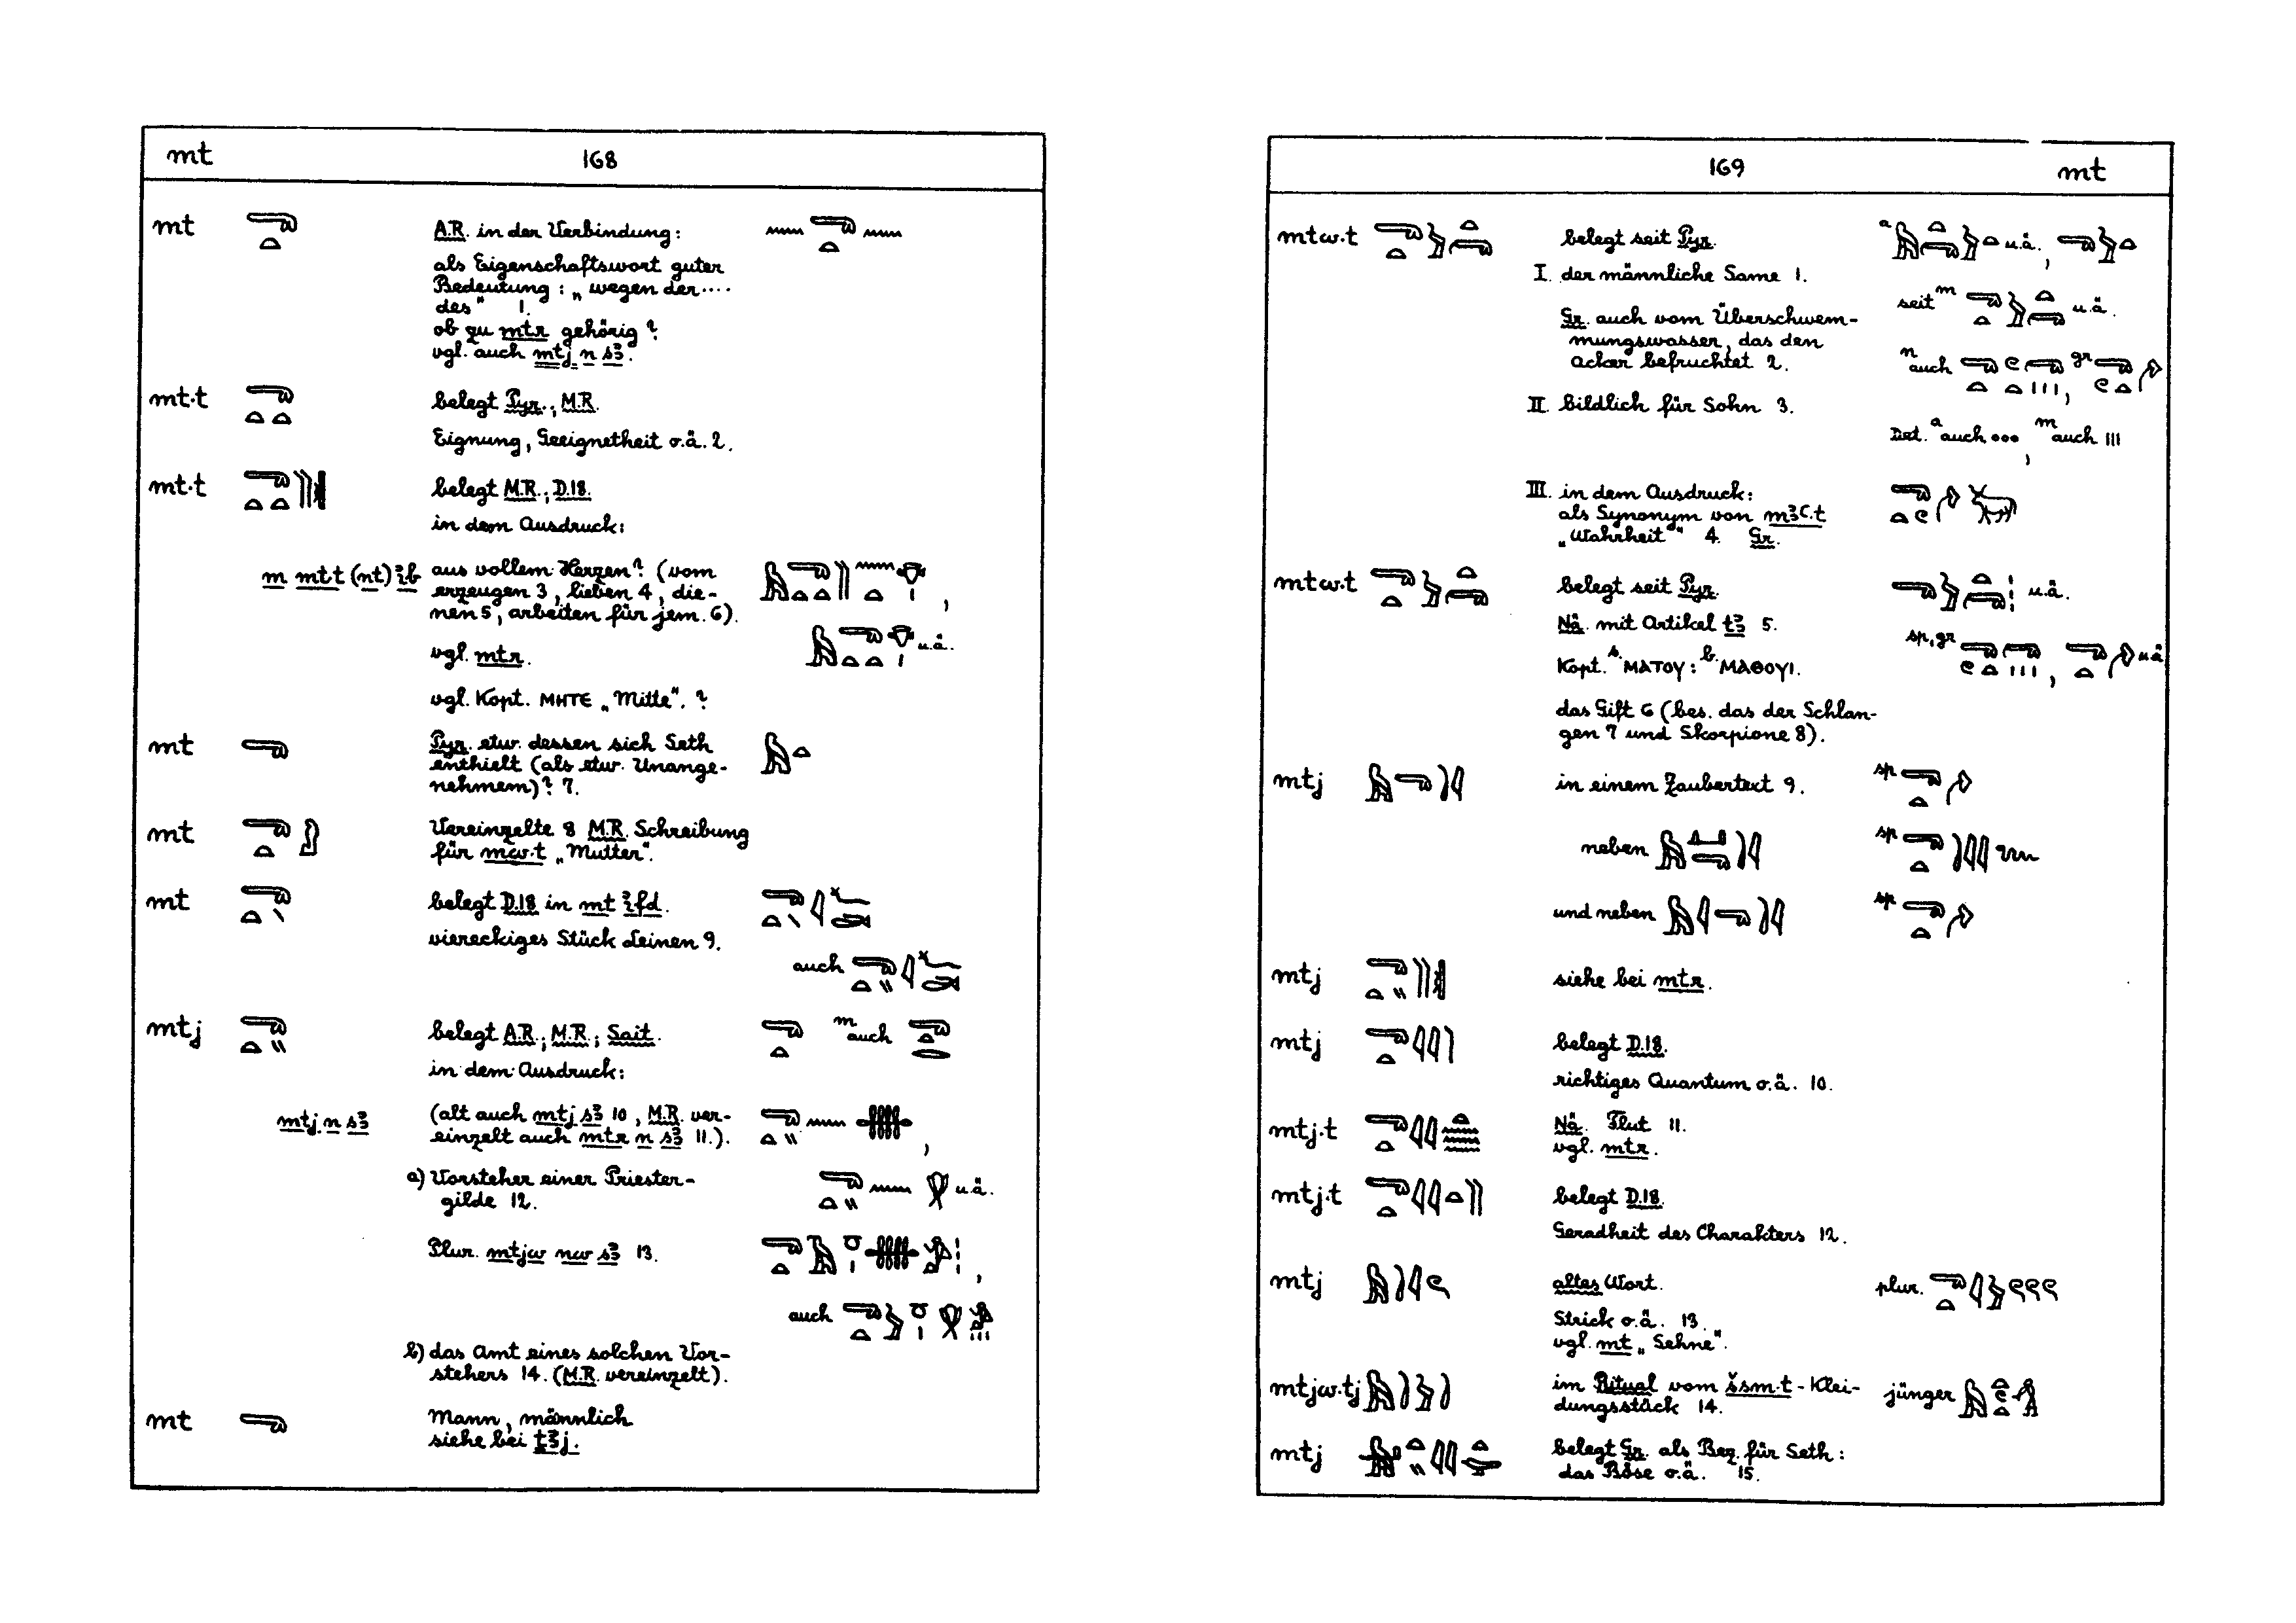 mt 168
mt A.R. in der Verbindung:
als Eigenschaftswort guter
Bedeutung: „wegen der....
des" 1.
ob zu mtr gehörig?
vgl. auch mtj n sꜣ.
mt·t belegt Pyr.; M.R.
Eignung, Geeignetheit o.ä. 2.
mt·t belegt M.R.; D.18.
in dem Ausdruck:
m mt·t (nt) ꞽb aus vollem Herzen? (vom
erzeugen 3, lieben 4, die-
nen 5, arbeiten für jem. 6). ,
vgl. mtr. u.ä.
vgl. Kopt. ⲙⲏⲧⲉ „Mitte". ?
mt Pyr. etw. dessen sich Seth
enthielt (als etw. Unange-
nehmem)? 7.
mt Vereinzelte 8 M.R. Schreibung
für mw·t „Mutter".
mt belegt D.18 in mt ꞽfd.
viereckiges Stück Leinen 9.
auch
mtj belegt A.R.; M.R.; Sait. m auch
in dem Ausdruck:
mtj n sꜣ (alt auch mtj sꜣ 10, M.R. ver-
einzelt auch mtr n sꜣ 11.). ,
a) Vorsteher einer Priester-
gilde 12. u.ä.
Plur. mtjw nw sꜣ 13. ,
auch
b) das Amt eines solchen Vor-
stehers 14. (M.R. vereinzelt).
mt Mann, männlich
siehe bei tꜣj.
169 mt
mtw·t belegt seit Pyr. a u.ä. ,
I. der männliche Same 1.
seit m u.ä.
Gr. auch vom Überschwem-
mungswasser, das den
Acker befruchtet 2. n auch , gr
II. bildlich für Sohn 3.
Det. a auch , m auch
III. in dem Ausdruck:
als Synonym von mꜣꜥ·t
„Wahrheit" 4. Gr.
mtw·t belegt seit Pyr. u.ä.
Nä. mit Artikel tꜣ 5.
Kopt. s. ⲙⲁⲧⲟⲩ: b. ⲙⲁⲑⲟⲩⲓ. sp, gr , u.ä
das Gift 6 (bes. das der Schlan-
gen 7 und Skorpione 8).
mtj in einem Zaubertext 9. sp
neben sp
und neben sp
mtj siehe bei mtr.
mtj belegt D.18.
richtiges Quantum o.ä. 10.
mtj·t Nä. Flut 11.
vgl. mtr.
mtj·t belegt D.18.
Geradheit des Charakters 12.
mtj altes Wort. plur.
Strick o.ä. 13.
vgl. mt „Sehne".
mtjw·tj im Ritual vom šsm·t-Klei-
dungsstück 14. jünger
mtj belegt Gr. als Bez. für Seth:
das Böse o.ä. 15.